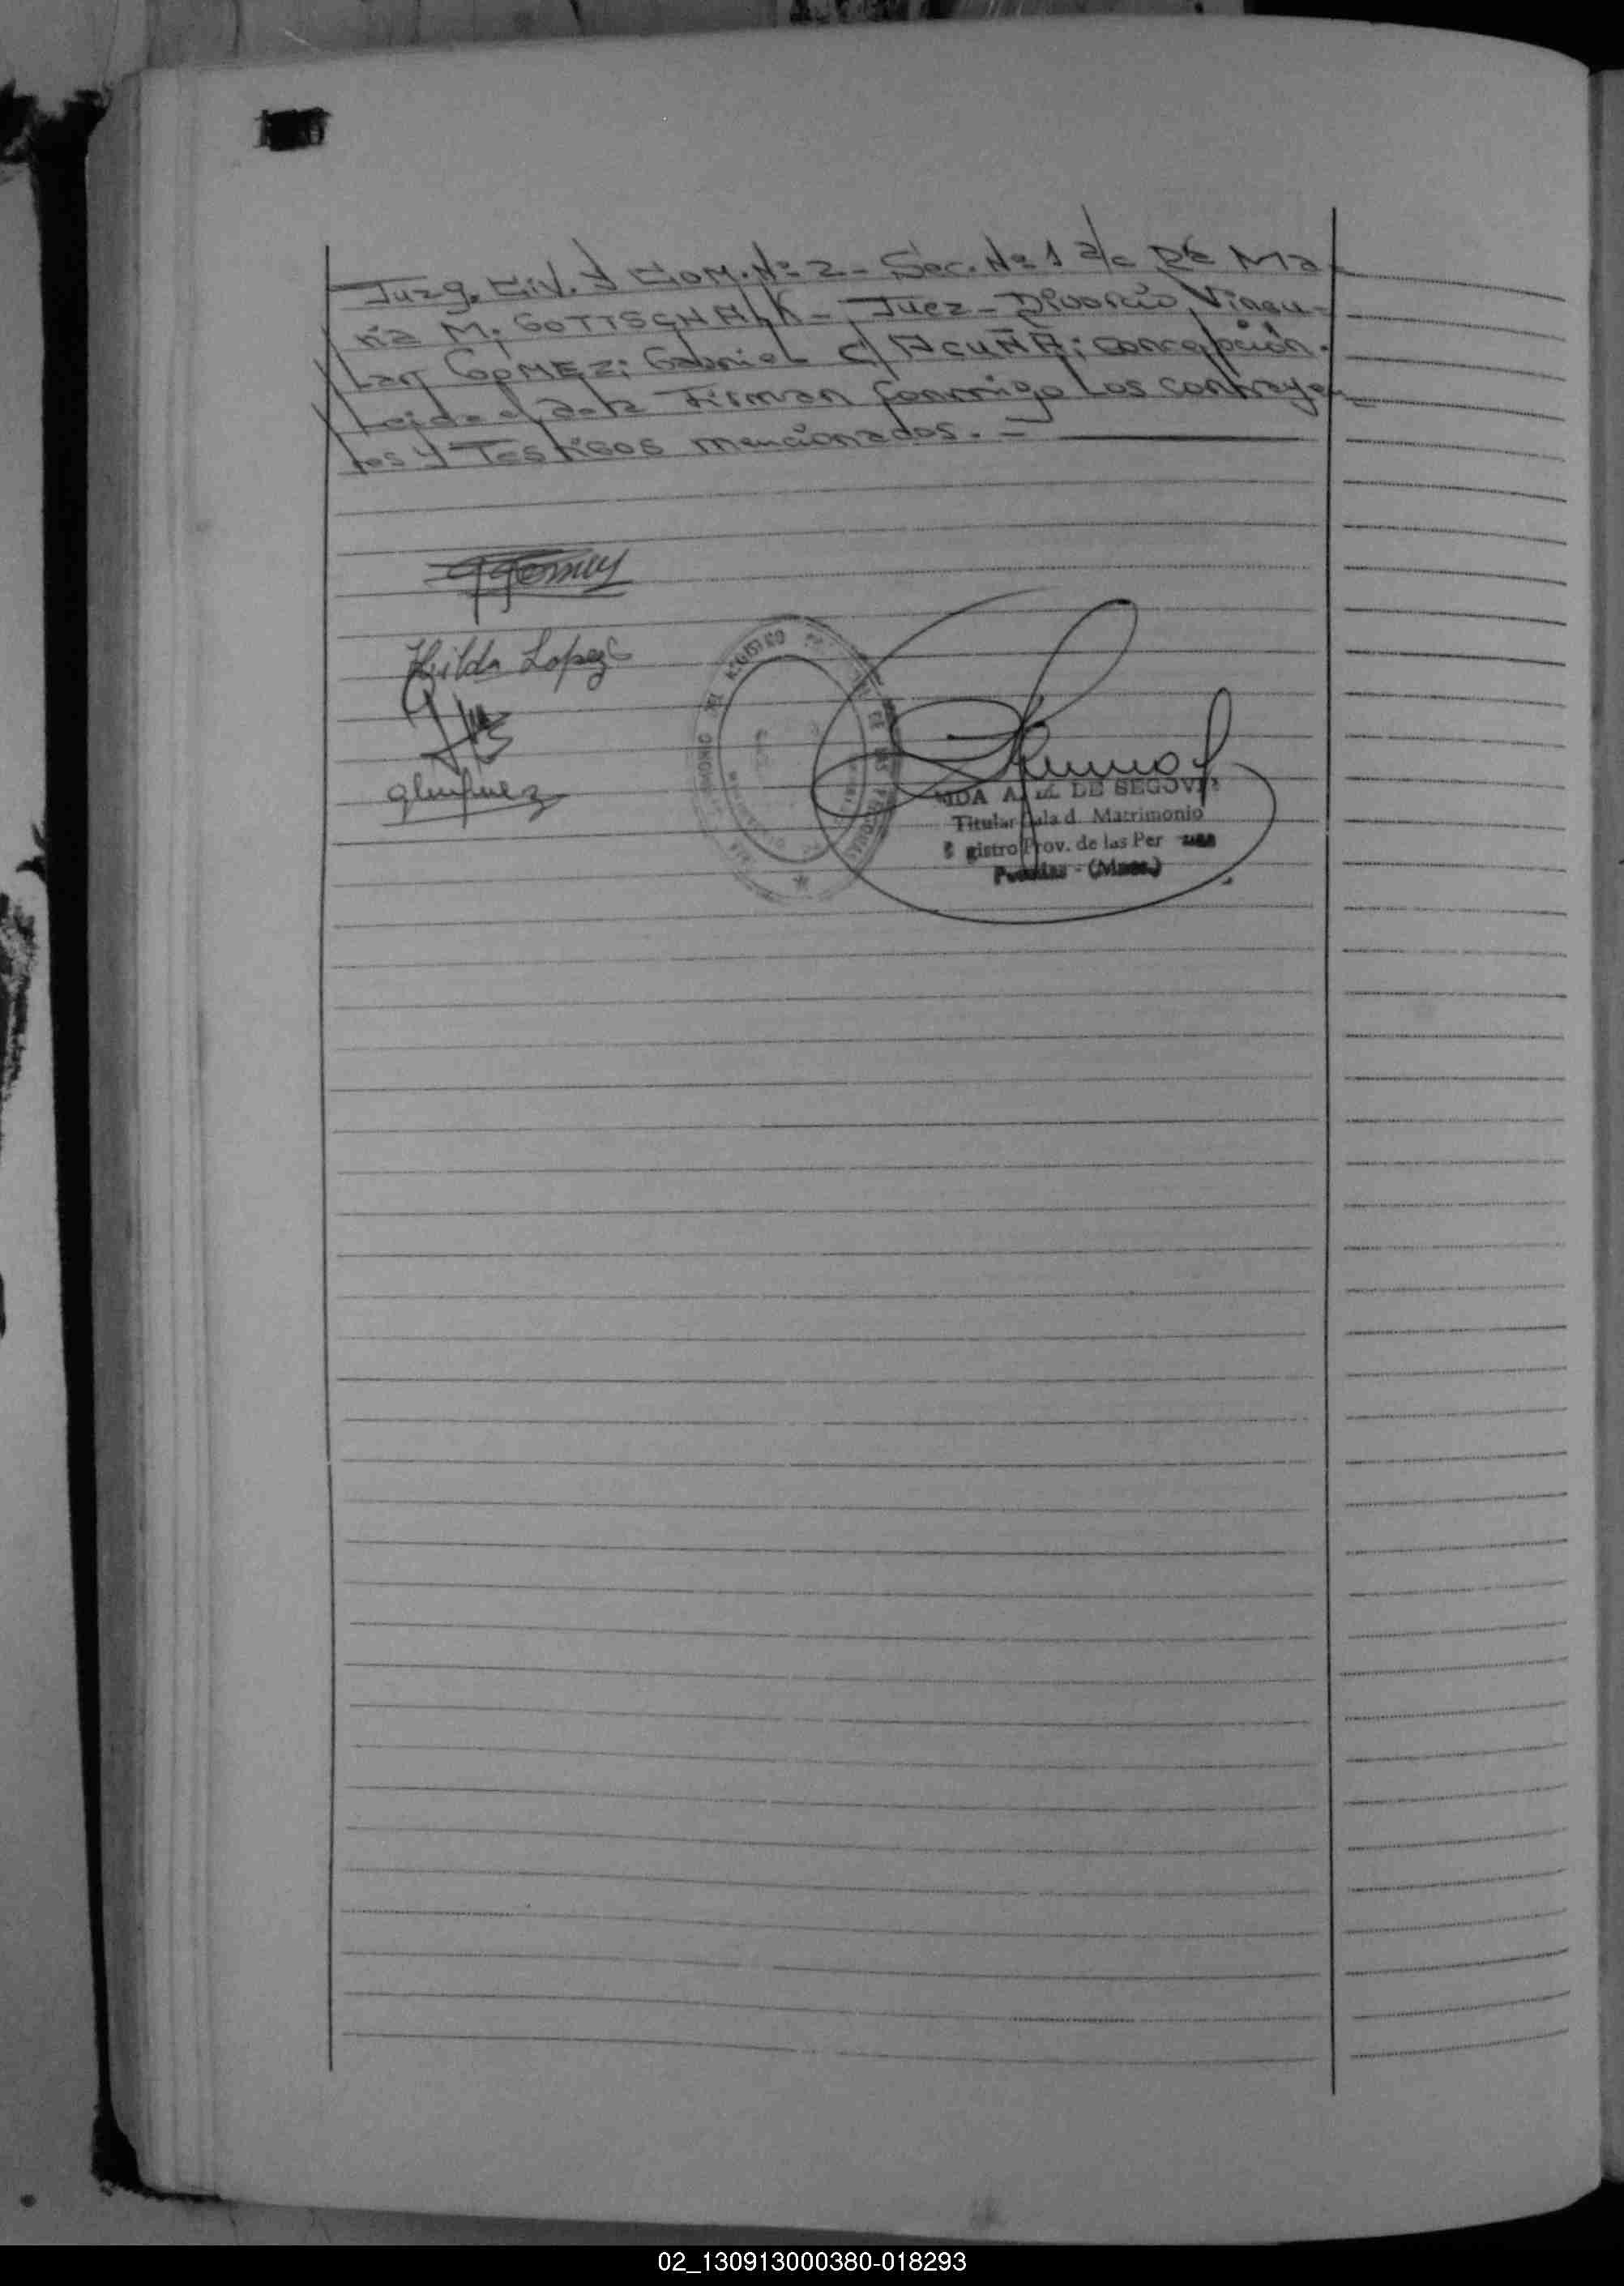 Juzg. Civ. y Com. Nº 2 - Sec. Nº 1 a/c Dra Ma
ría M. GOTTSCHALK - Juez - Divorcio Vincu-
Lar GOMEZ; Gabriel c/ ACUÑA; concepción.
Leida el acta Firman conmigo Los contrayen
tes y Testigos mencionados. =
GGomez
Hilda Lopez
DE SEGOVIA
Titular Sala d Matrimonio
gistro Prov. de las Per
Posadas - (Mnes.)
02_130913000380-018293